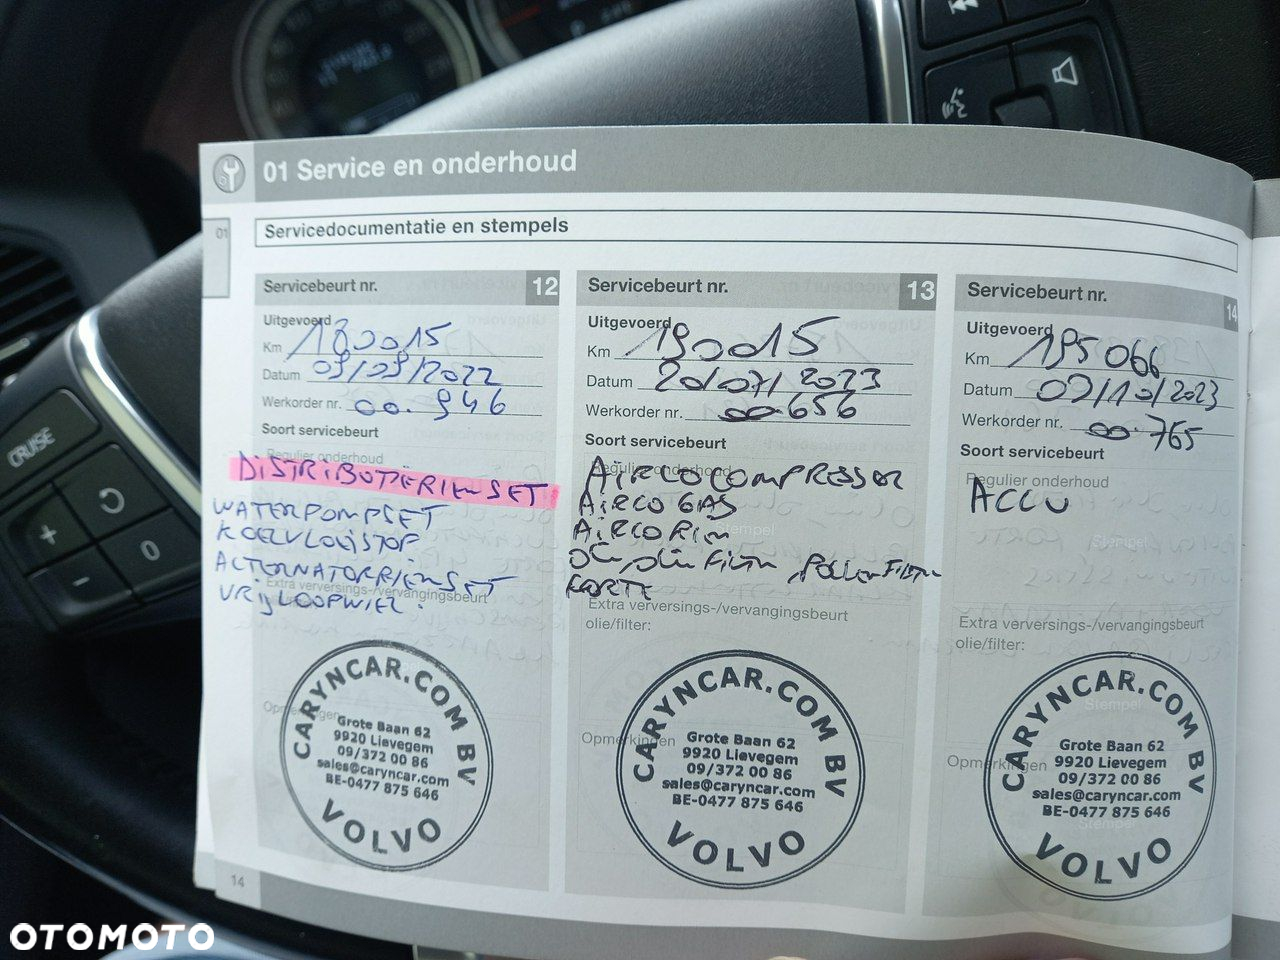 01 Service en onderhoud
01
Servicedocumentatie en stempels
Servicebeurt nr. 12
Uitgevoerd
Km 180015
Datum 09/09/2022
Werkorder nr. 00.946
Soort servicebeurt
Regulier onderhoud
DISTRIBUTIERIEMSET
WATERPOMPSET
KOELVLOEISTOF
ALTERNATORRIEMSET
VRIJLOOPWIEL.
Extra verversings-/vervangingsbeurt
Opmerkingen
CARYNCAR.COM BV
Grote Baan 62
9920 Lievegem
09/372 00 86
sales@caryncar.com
BE-0477 875 646
VOLVO
14
Servicebeurt nr. 13
Uitgevoerd
Km 190015
Datum 20/07/2023
Werkorder nr. 00.656
Soort servicebeurt
Regulier onderhoud
AIRCOCOMPRESSOR
AIRCO GAS
AIRCO RIEM
Stempel
OLIE, OLIEFILTER, POLLENFILTER
KORTE
Extra verversings-/vervangingsbeurt
olie/filter:
Opmerkingen
CARYNCAR.COM BV
Grote Baan 62
9920 Lievegem
09/372 00 86
sales@caryncar.com
BE-0477 875 646
VOLVO
Servicebeurt nr. 14
Uitgevoerd
Km 195066
Datum 09/10/2023
Werkorder nr. 00.765
Soort servicebeurt
Regulier onderhoud
ACCU
Stempel
Extra verversings-/vervangingsbeurt
olie/filter:
Stempel
Opmerkingen
CARYNCAR.COM BV
Grote Baan 62
9920 Lievegem
09/372 00 86
sales@caryncar.com
BE-0477 875 646
Stempel
VOLVO
CRUISE
+
0
-
OTOMOTO